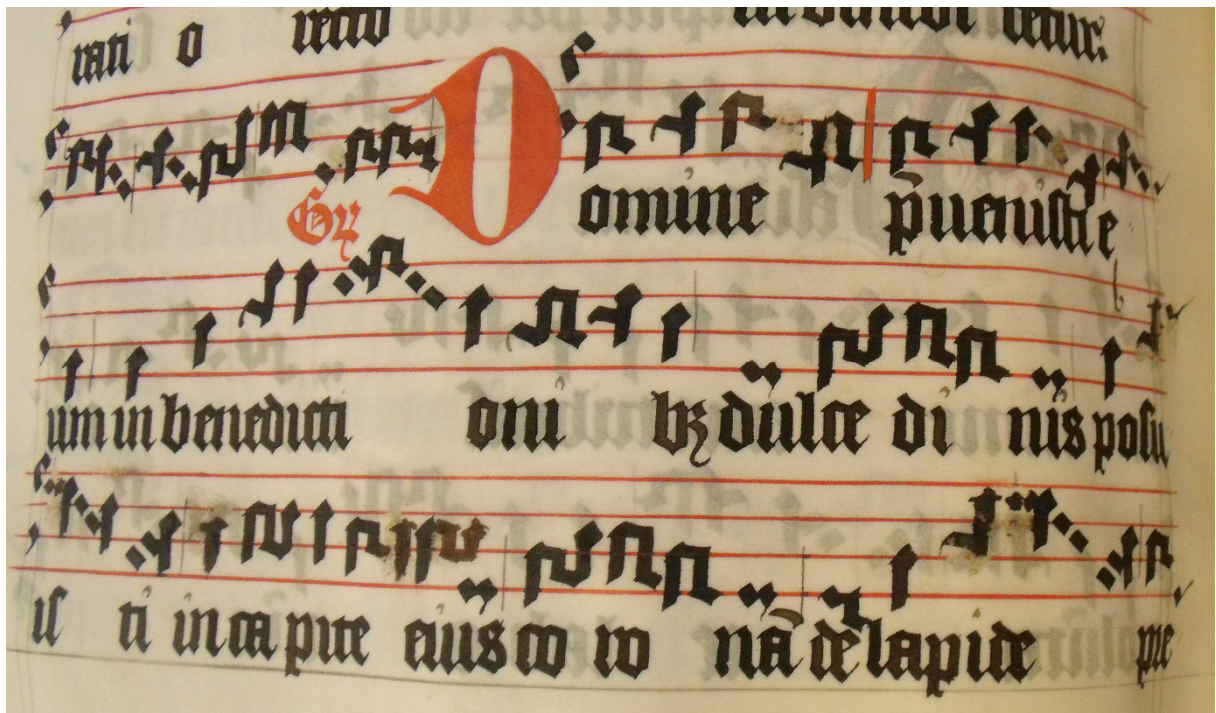 rati o recto
Gr Domine p̄uenisti e
um in benedicti oni bꝫ dulce di nis posu
is ti in capite eius co ro nā de lapide pre